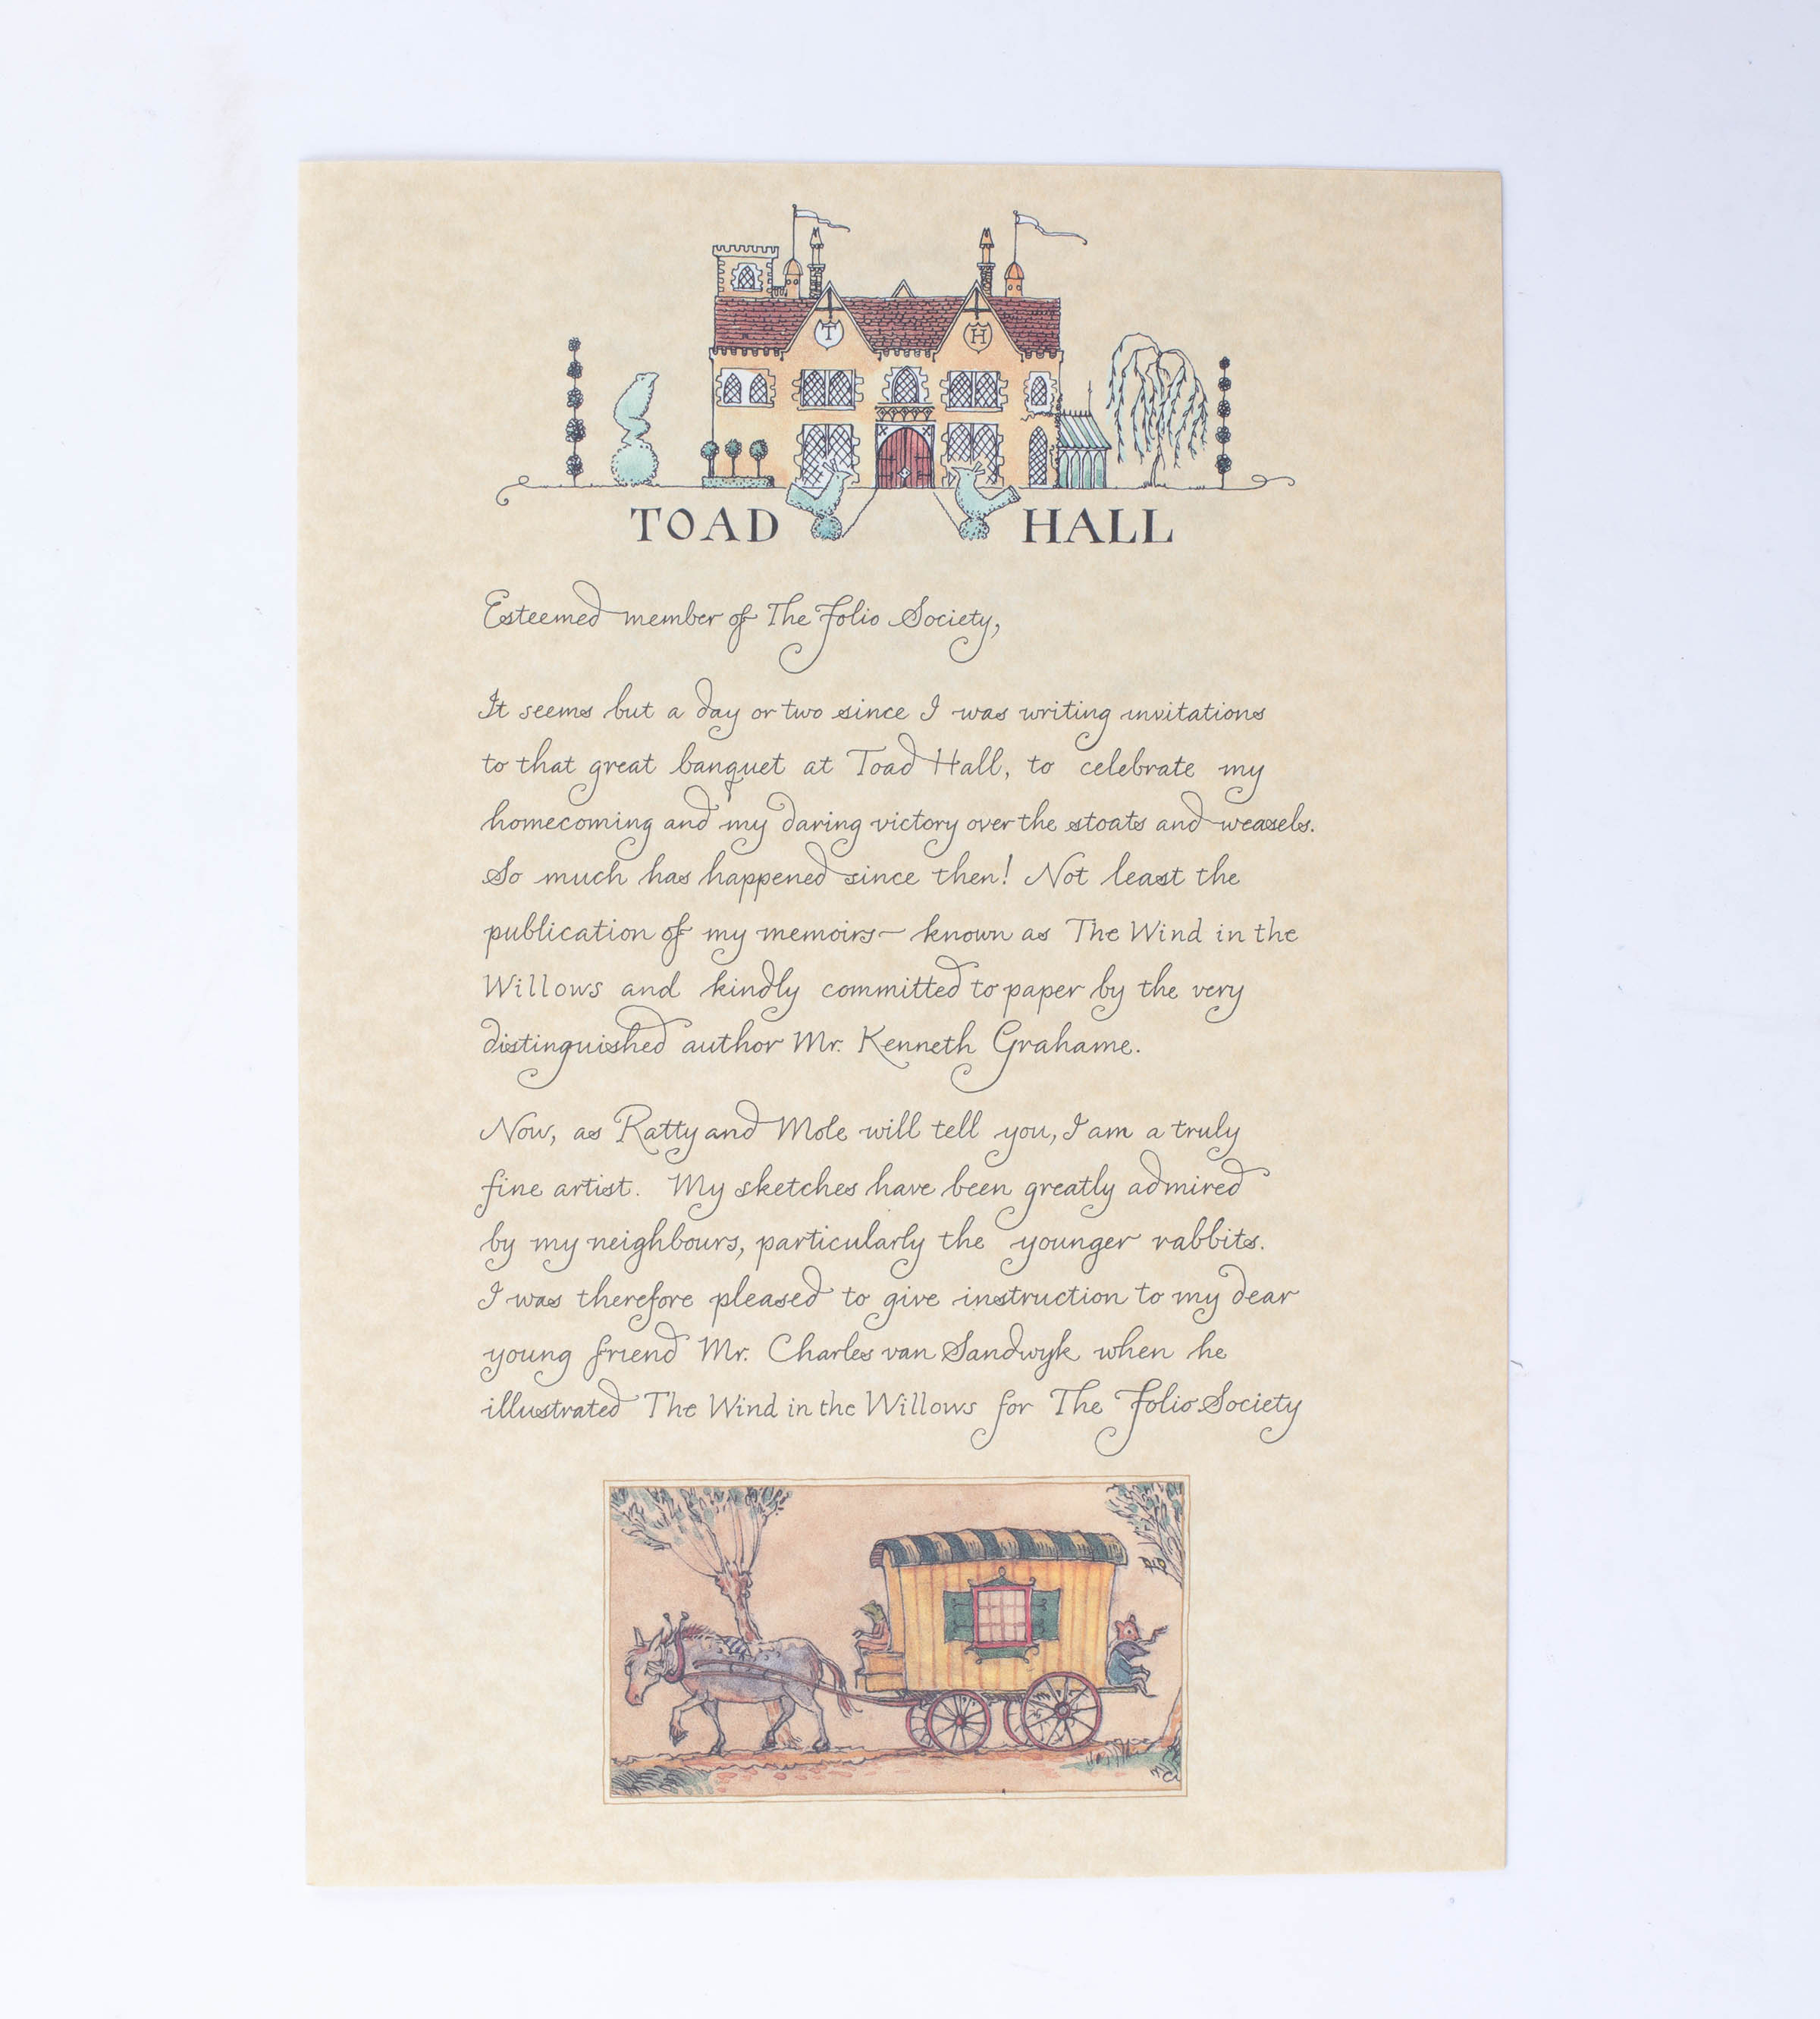 T H
TOAD HALL
Esteemed member of The Folio Society,
It seems but a day or two since I was writing invitations
to that great banquet at Toad Hall, to celebrate my
homecoming and my daring victory over the stoats and weasels.
So much has happened since then! Not least the
publication of my memoirs – known as The Wind in the
Willows and kindly committed to paper by the very
distinguished author Mr. Kenneth Grahame.
Now, as Ratty and Mole will tell you, I am a truly
fine artist. My sketches have been greatly admired
by my neighbours, particularly the younger rabbits.
I was therefore pleased to give instruction to my dear
young friend Mr. Charles van Sandwyk when he
illustrated The Wind in the Willows for The Folio Society